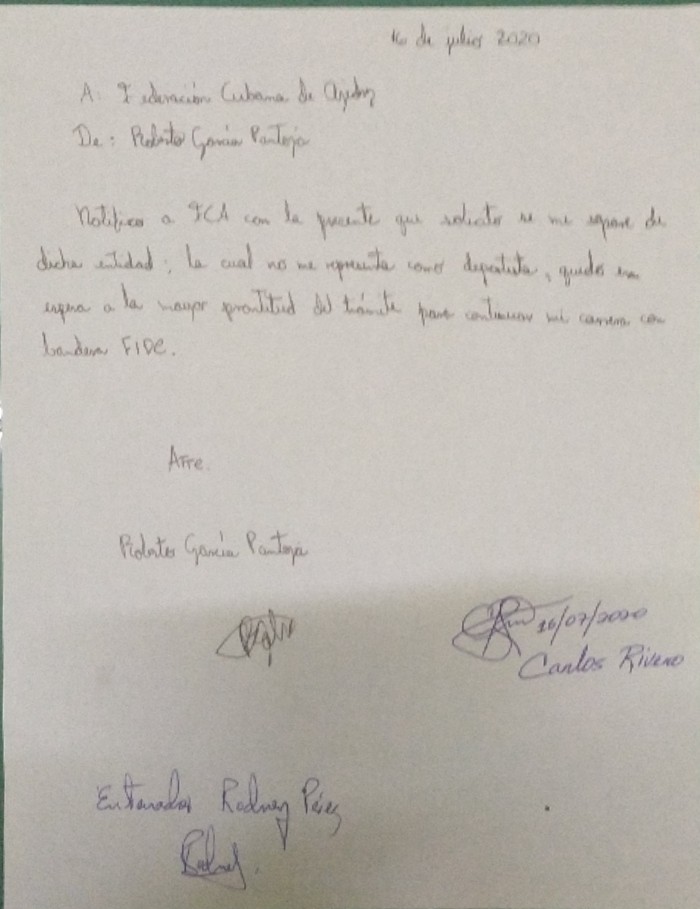 16 de julio 2020
A: Federación Cubana de Ajedrez
De: Roberto García Pantoja
Notifico a FCA con la presente que solicito se me separe de
dicha entidad; la cual no me representa como deportista, quedo en
espera a la mayor prontitud del trámite para continuar mi carrera con
bandera FIDE.
Atte.
Roberto García Pantoja
16/07/2020
Carlos Rivero
Entrenador Rodney Pérez
Rodney